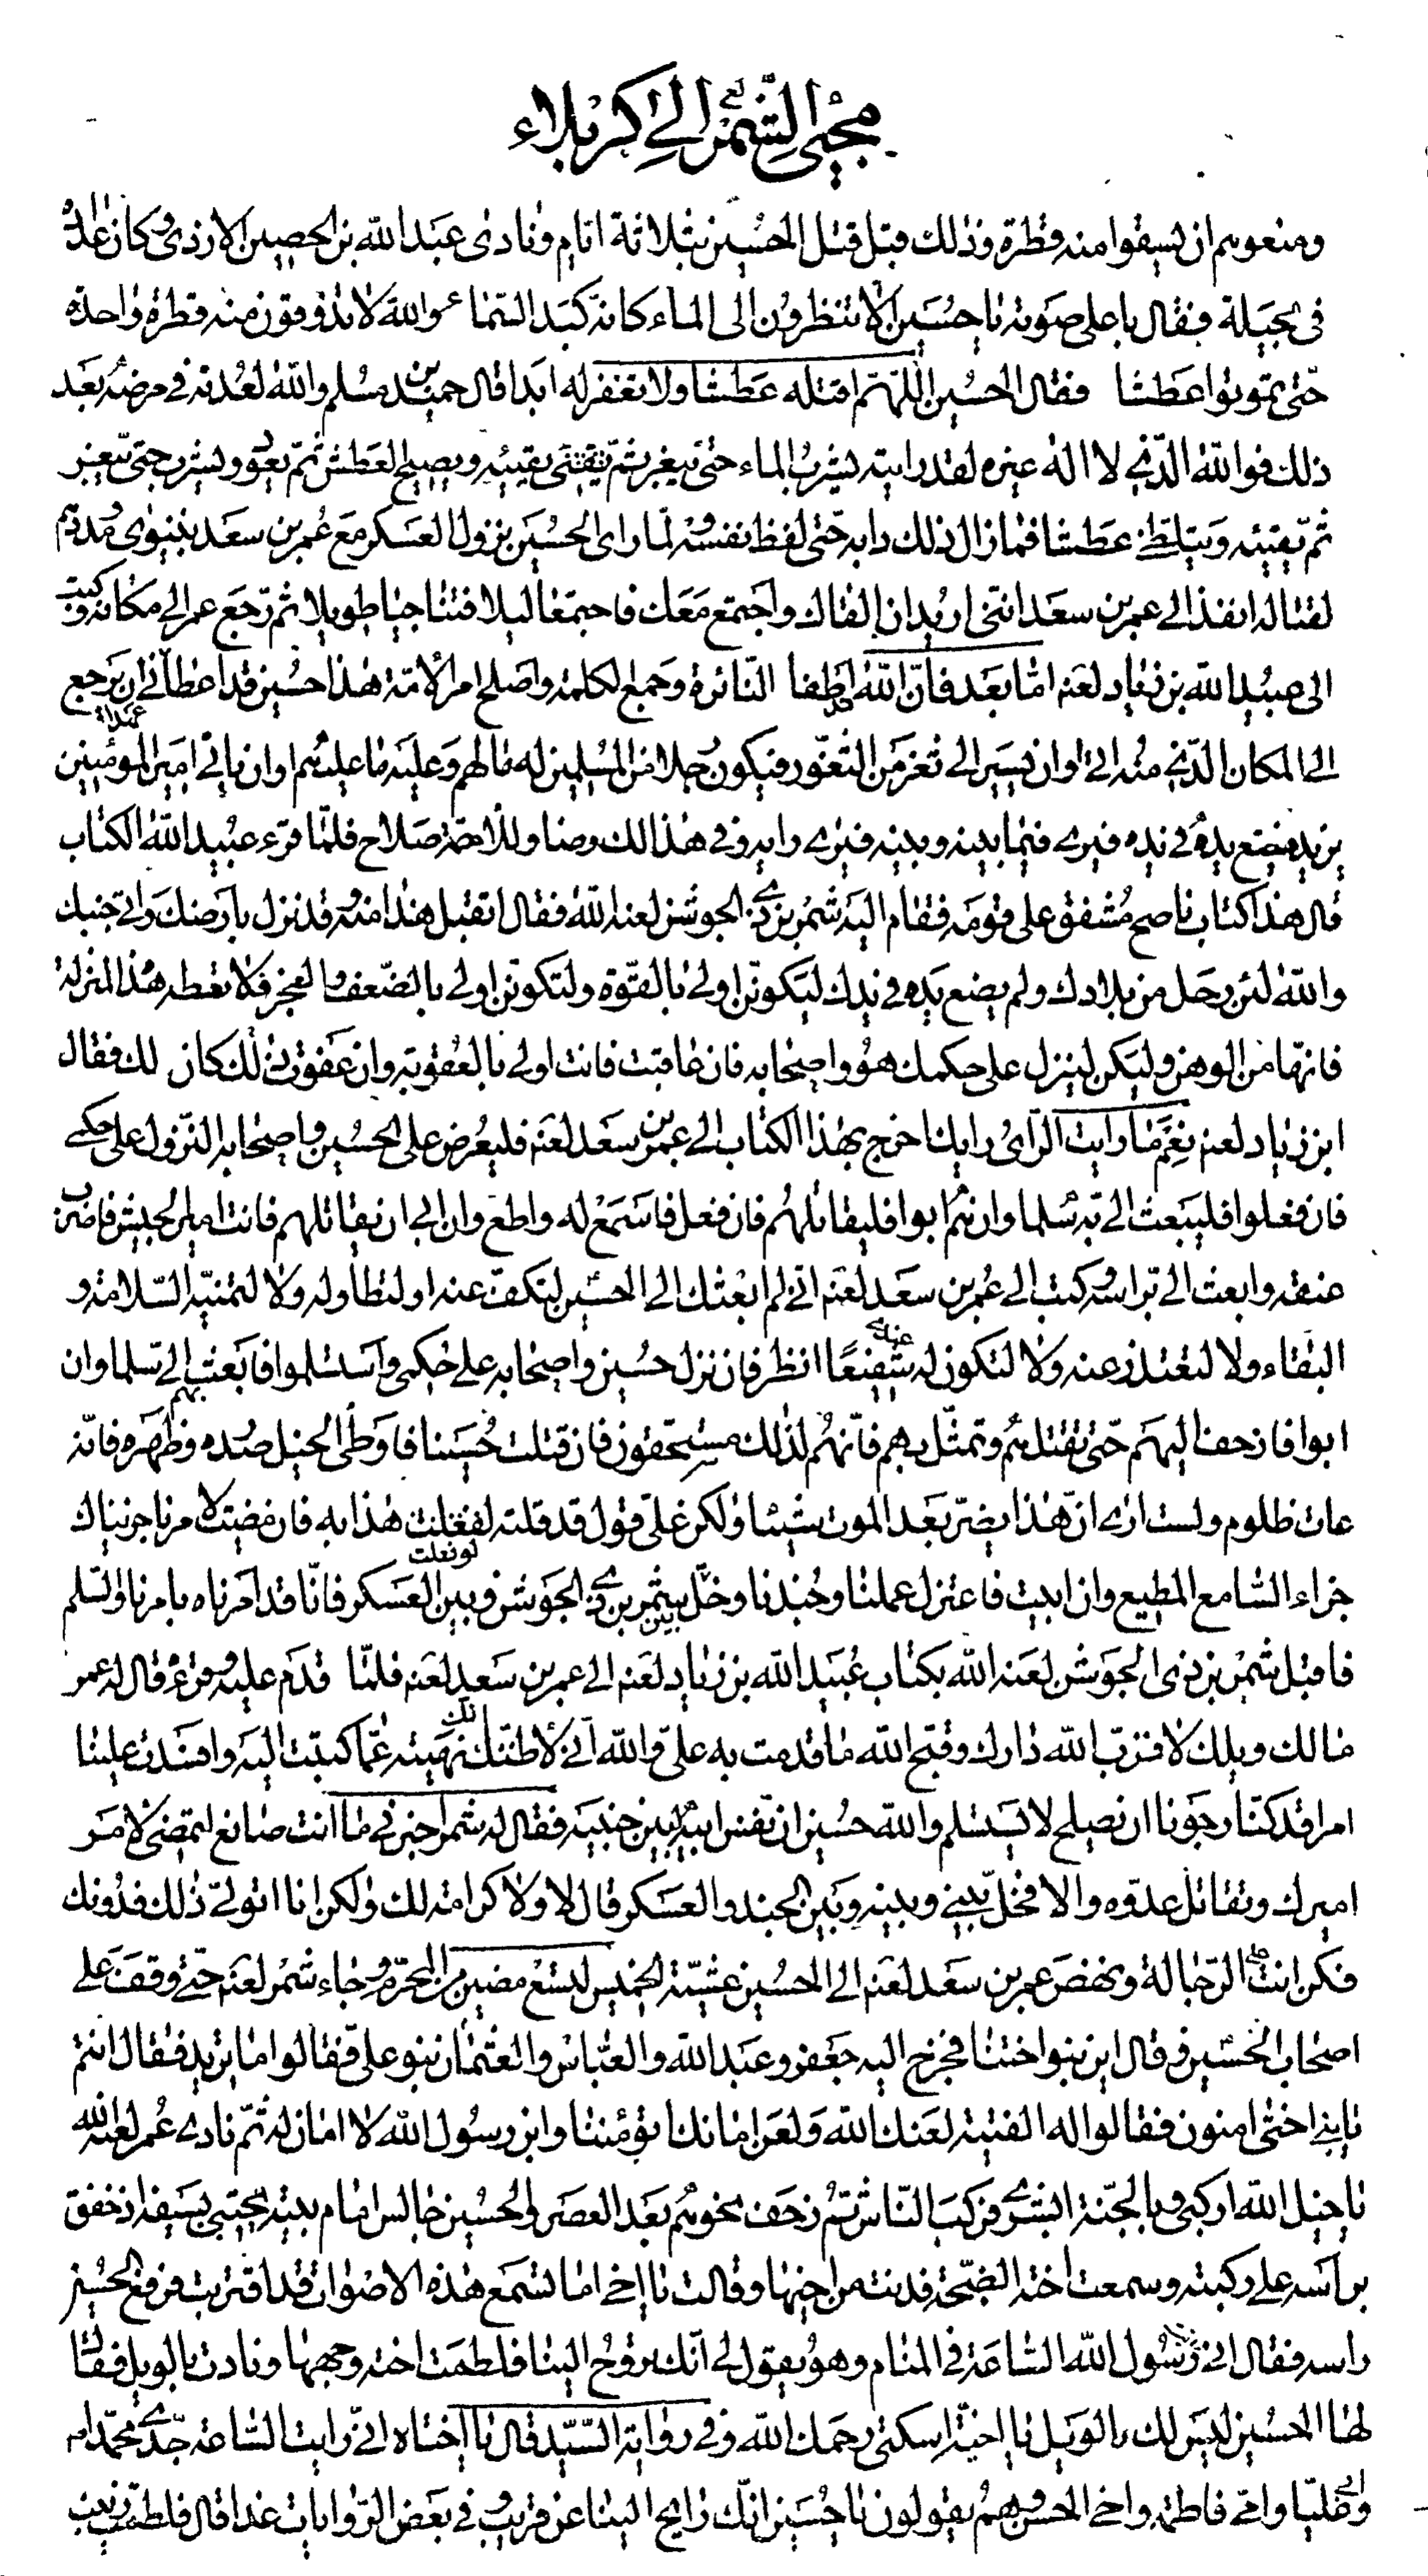 مجيئ الشمر لع الى كربلاء
ومنعوهم ان يسقوا منه قطرة وذلك قبل قتل الحسين بثلاثة ايام ونادى عبد الله بن الحصين الازدى وكان عداده
فى بجيلة فقال باعلى صوته يا حسين الا تنظرون الى الماء كانه كبد السماء والله لا تذوقون منه قطرة واحدة
حتى تموتوا عطشا فقال الحسين اللهم اقتله عطشا ولا تغفر له ابدا قال حميد بن مسلم والله لعدته فى مرضه بعد
ذلك فوالله الذى لا اله غيره لقد رايته يشرب الماء حتى يبغر ثم يقيئ يقيئه ويصيح العطش ثم يعود ويشرب حتى يبغر
ثم يقيئه ويتلظى عطشا فما زال ذلك دابه حتى لفظ نفسه ولما راى الحسين نزول العسكر مع عمر بن سعد بنينوى ومددهم
لقتاله انفذ الى عمر بن سعد اننى اريد ان القاك واجتمع معك فاجتمعا ليلا فتناجيا طويلا ثم رجع عمر الى مكانه وكتب
الى عبيد الله بن زياد لعنه اما بعد فان الله قد اطفا النائرة وجمع الكلمة واصلح امر الامة هذا حسين قد اعطانى عهدا ان يرجع
الى المكان الذى منه اتى او ان يسير الى ثغر من الثغور فيكون رجلا من المسلمين له ما لهم وعليه ما عليهم او ان ياتى امير المؤمنين
يزيد فيضع يده فى يده فيرى فيما بينه وبينه فيرى رايه وفى هذا لك رضا وللامة صلاح فلما قرء عبيد الله الكتاب
قال هذا كتاب ناصح مشفق على قومه فقام اليه شمر بن ذى الجوشن لعنه الله فقال اتقبل هذا منه وقد نزل بارضك والى جنبك
والله لئن رحل من بلادك ولم يضع يده فى يدك ليكونن اولى بالقوة ولتكونن اولى بالضعف والعجز فلا تعطه هذه المنزلة
فانها من الوهن وليكن لينزل على حكمك هو واصحابه فان عاقبت فانت اولى بالعقوبة وان عفوت كان ذلك لك فقال
ابن زياد لعنه نعم ما رايت الراى رايك اخرج بهذا الكتاب الى عمر بن سعد لعنه فليعرض على الحسين واصحابه النزول على حكمى
فان فعلوا فليبعث الى بهم سلما وان هم ابوا فليقاتلهم فان فعل فاسمع له واطع وان ابى ان يقاتلهم فانت امير الجيش فاضرب
عنقه وابعث الى براسه وكتب الى عمر بن سعد لعنه انى لم ابعثك الى الحسين لتكف عنه او لتطاوله ولا لتمنيه السلامة و
البقاء ولا لتعتذر عنه ولا لتكون له عندى شفيعا انظر فان نزل حسين واصحابه على حكمى واستسلموا فابعث بهم الى سلما وان
ابوا فازحف اليهم حتى تقتلهم وتمثل بهم فانهم لذلك مستحقون فان قتلت حسينا فاوطئ الخيل صدره وظهره فانه
عات ظلوم ولست ارى ان هذا يضر بعد الموت شيئا ولكن على قول قد قلته لو فعلت لفعلت هذا به فان مضيت لامرنا جزيناك
جزاء السامع المطيع وان ابيت فاعتزل عملنا وجندنا وخل بين شمر بن ذى الجوشن وبين العسكر فانا قد امرناه بامرنا والسلم
فاقبل شمر بن ذى الجوشن لعنه الله بكتاب عبيد الله بن زياد لعنه الى عمر بن سعد لعنه فلما قدم عليه وقرءه قال له عمر
مالك ويلك لا قرب الله دارك وقبح الله ما قدمت به على والله انى لاظنك انك نهيته عما كتبت اليه وافسدت علينا
امرا قد كنا رجونا ان نصلح لا يستسلم والله حسين ان نفس ابيه لبين جنبيه فقال له شمر اخبرنى ما انت صانع اتمضى لامر
اميرك وتقاتل عدوه والا فخل بينى وبينه وبين الجند والعسكر قال لا ولا كرامة لك ولكن انا اتولى ذلك فدونك
فكن انت على الرجالة ونهض عمر بن سعد لعنه الى الحسين عشية الخميس لتسع مضين من المحرم وجاء شمر لعنه حتى وقف على
اصحاب الحسين فقال اين بنوا اختنا فخرج اليه جعفر وعبد الله والعباس والعثمان بنو على فقالوا ما تريد فقال انتم
يا بنى اختى امنون فقالوا له الفتية لعنك الله ولعن امانك اتؤمننا وابن رسول الله لا امان له ثم نادى عمر لعنه الله
يا خيل الله اركبى وبالجنة ابشرى فركب الناس ثم زحف نحوهم بعد العصر والحسين جالس امام بيته محتبى بسيفه اذ خفق
براسه على ركبته وسمعت اخته الضجة فدنت من اخيها وقالت يا اخى اما تسمع هذه الاصوات قد اقتربت فرفع الحسين
راسه فقال انى رايت رسول الله الساعة فى المنام وهو يقول لى انك تروح الينا فلطمت اخته وجهها ونادت بالويل فقال
لها الحسين ليس لك الويل يا اخية اسكتى رحمك الله وفى رواية السيد قال يا اختاه انى رايت الساعة جدى محمدا
وابى عليا وامى فاطمة واخى الحسن وهم يقولون يا حسين انك رايح الينا عن قريب وفى بعض الروايات غدا قال فلطمت زينب